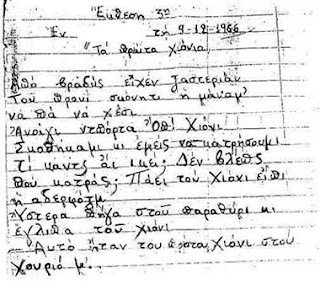 Έκθεση 3η
Εν τη 9-12-1966
"Τα πρώτα χιόνια
Από βραδύς είχεν ξαστεριάν
Του πρανί σκόντι η μάναμ'
να πά να χέσι
Ανοίγι ντπόρτα Όπ! Χιόνι!
Σκοθήκαμι κι εμείς να κατρήσουμι
Τί καντς αι κει; Δεν βλέπς
που κατράς; Πάει του χιόνι είπι
η αδερφήτμ
Ύστερα πήγα στου παραθύρι κι
έγλιπα του χιόνι
- Αυτό ήταν του πρώτα χιόνι στου
χουριό μ'.